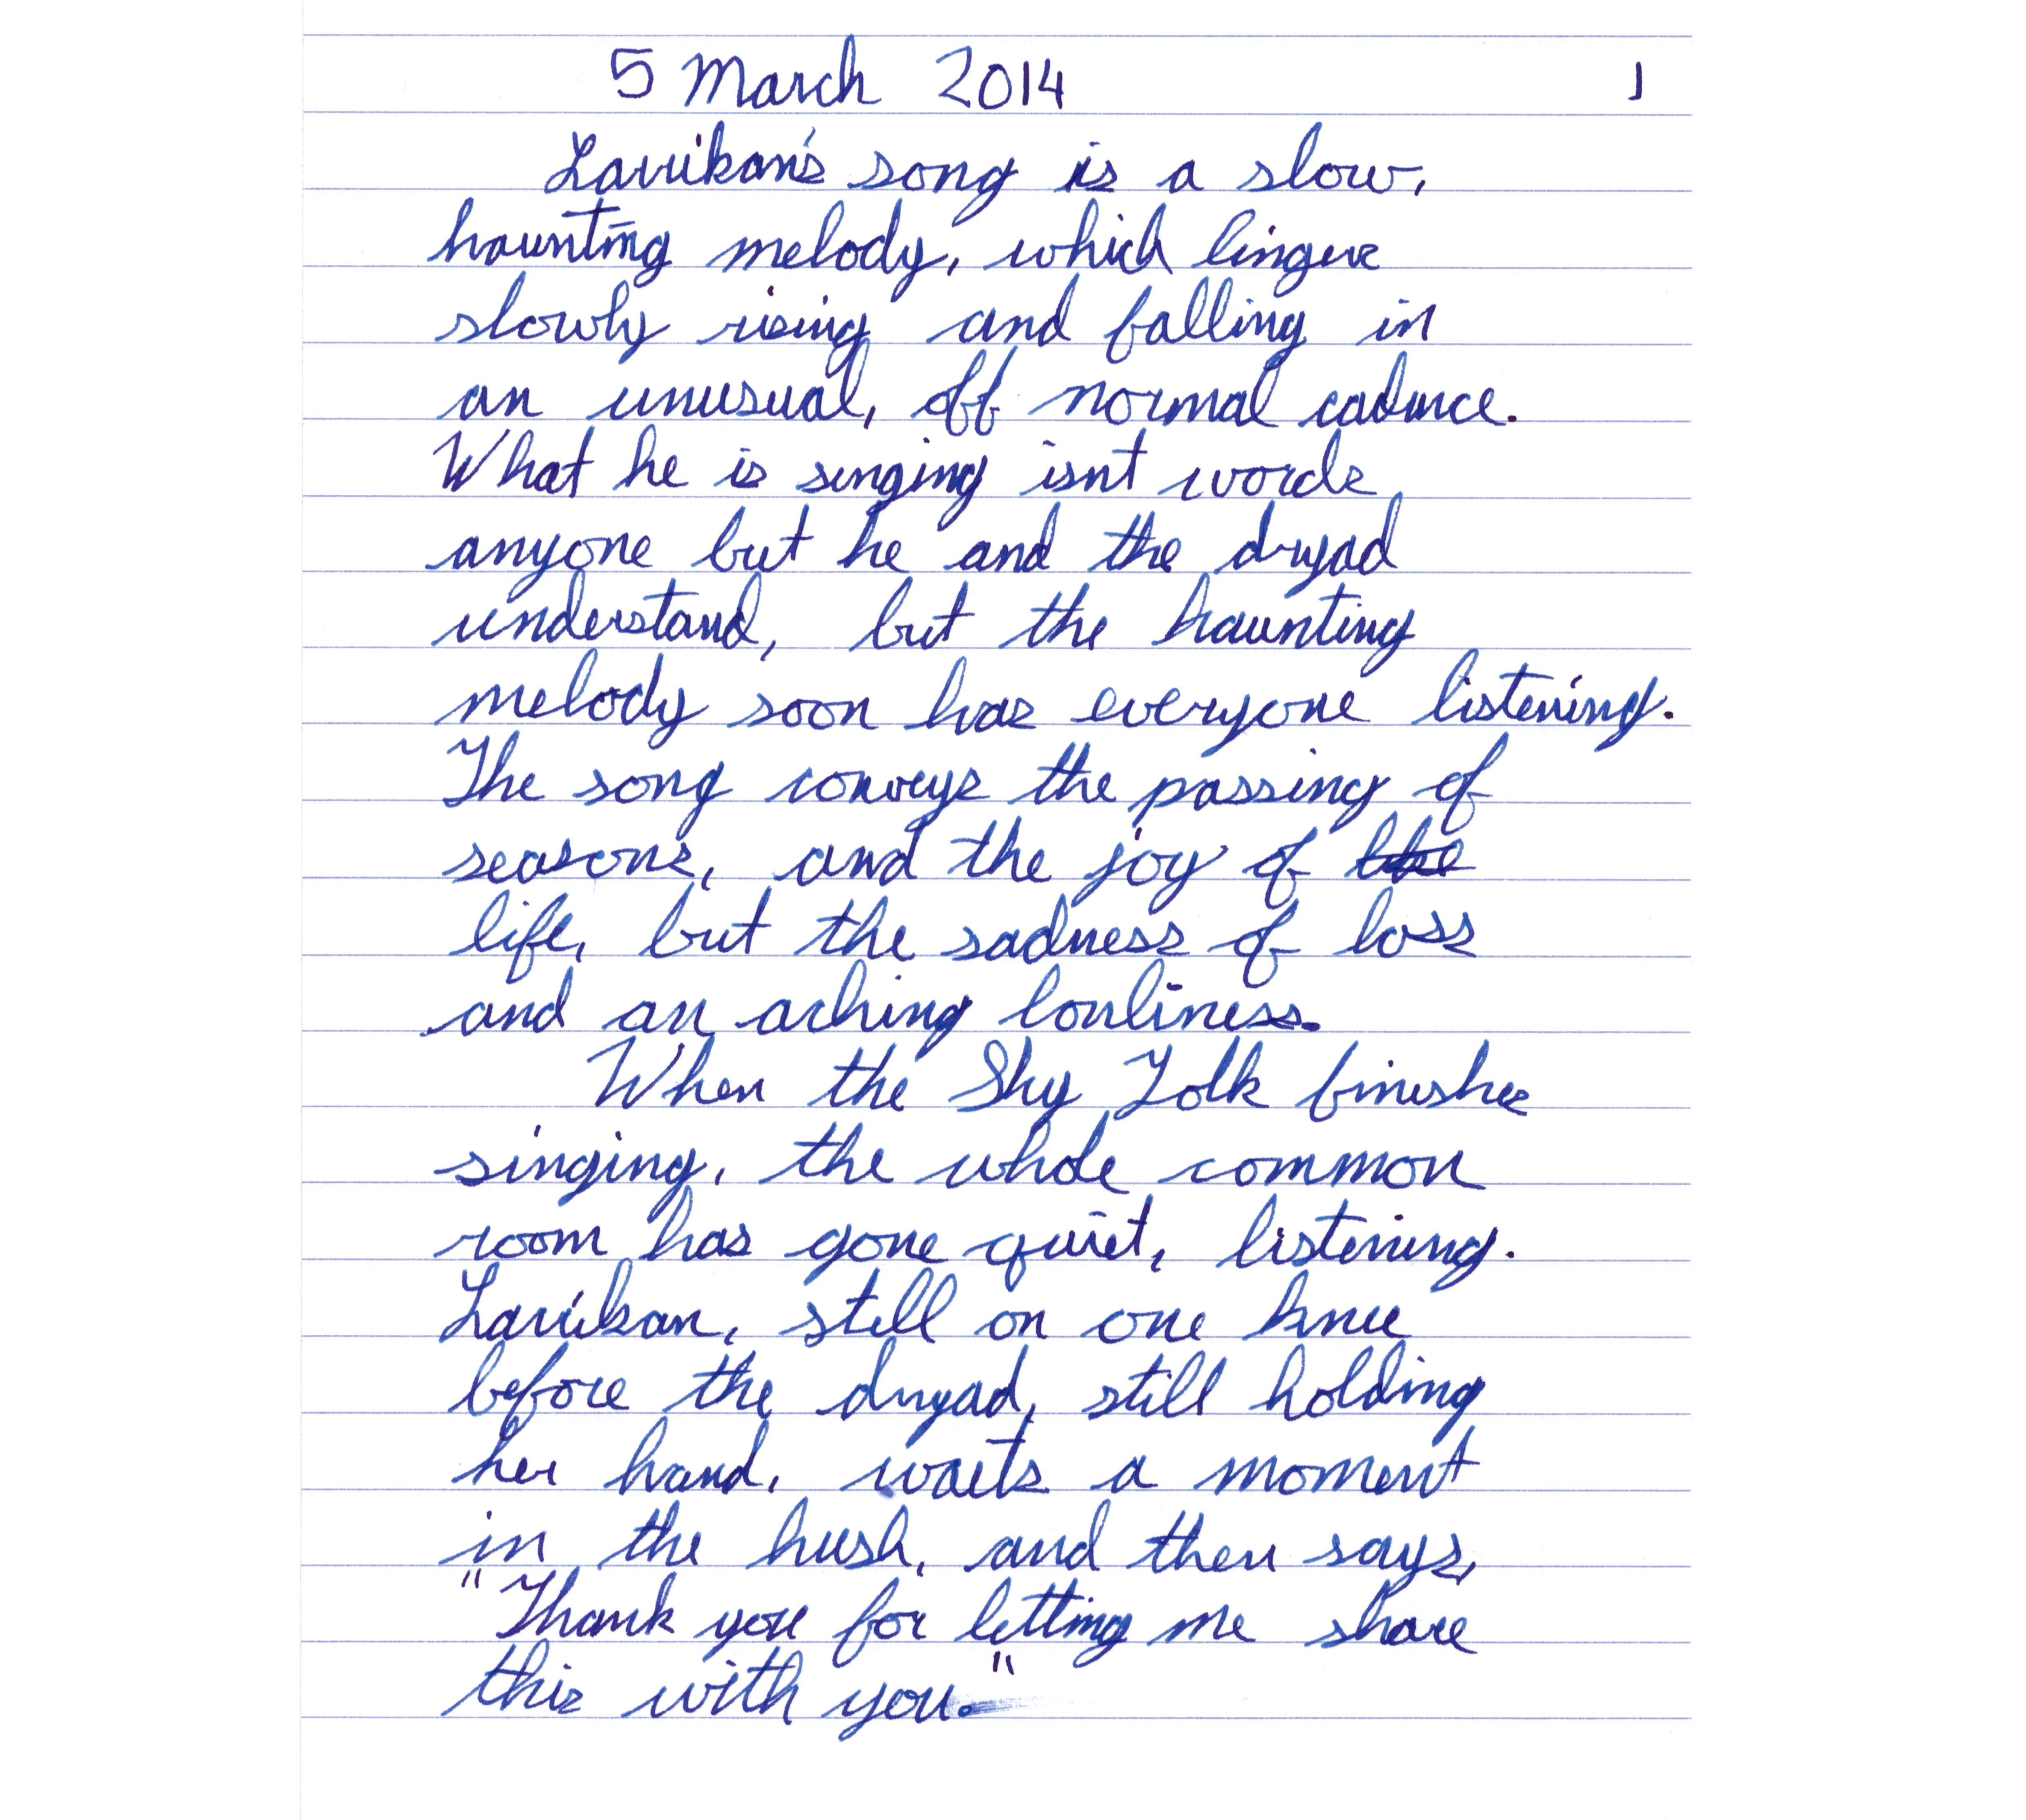 5 March 2014 1
Larrikan's song is a slow,
haunting melody, which lingers
slowly rising and falling in
an unusual, off normal cadence.
What he is singing isnt words
anyone but he and the dryad
understand, but the haunting
melody soon has everyone listening.
The song conveys the passing of
seasons, and the joy of
life, but the sadness of loss
and an aching lonliness.
When the Sky Folk finishes
singing, the whole common
room has gone quiet, listening.
Larikan, still on one knee
before the dryad, still holding
her hand, waits a moment
in the hush, and then says,
"Thank you for letting me share
this with you."